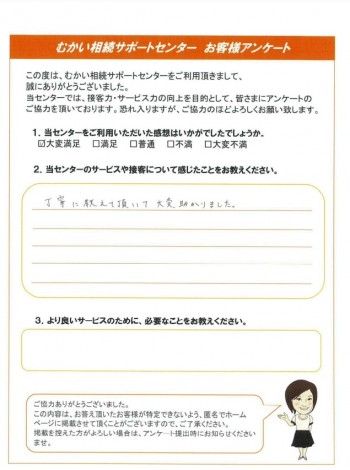 むかい相続サポートセンター　お客様アンケート
この度は、むかい相続サポートセンターをご利用頂きまして、
誠にありがとうございました。
当センターでは、接客力・サービス力の向上を目的として、皆さまにアンケートの
ご協力を頂いております。恐れ入りますが、ご協力のほどよろしくお願い致します。
1. 当センターをご利用いただいた感想はいかがでしたでしょうか。
☑大変満足　□満足　□普通　□不満　□大変不満
2. 当センターのサービスや接客について感じたことをお教えください。
丁寧に教えて頂いて大変助かりました。
3. より良いサービスのために、必要なことをお教えください。
ご協力ありがとうございました。
この内容は、お答え頂いたお客様が特定できないよう、匿名でホーム
ページに掲載させて頂くことがございますので、ご了承ください。
掲載を控えた方がよろしい場合は、アンケート提出時にお知らせくださいませ。